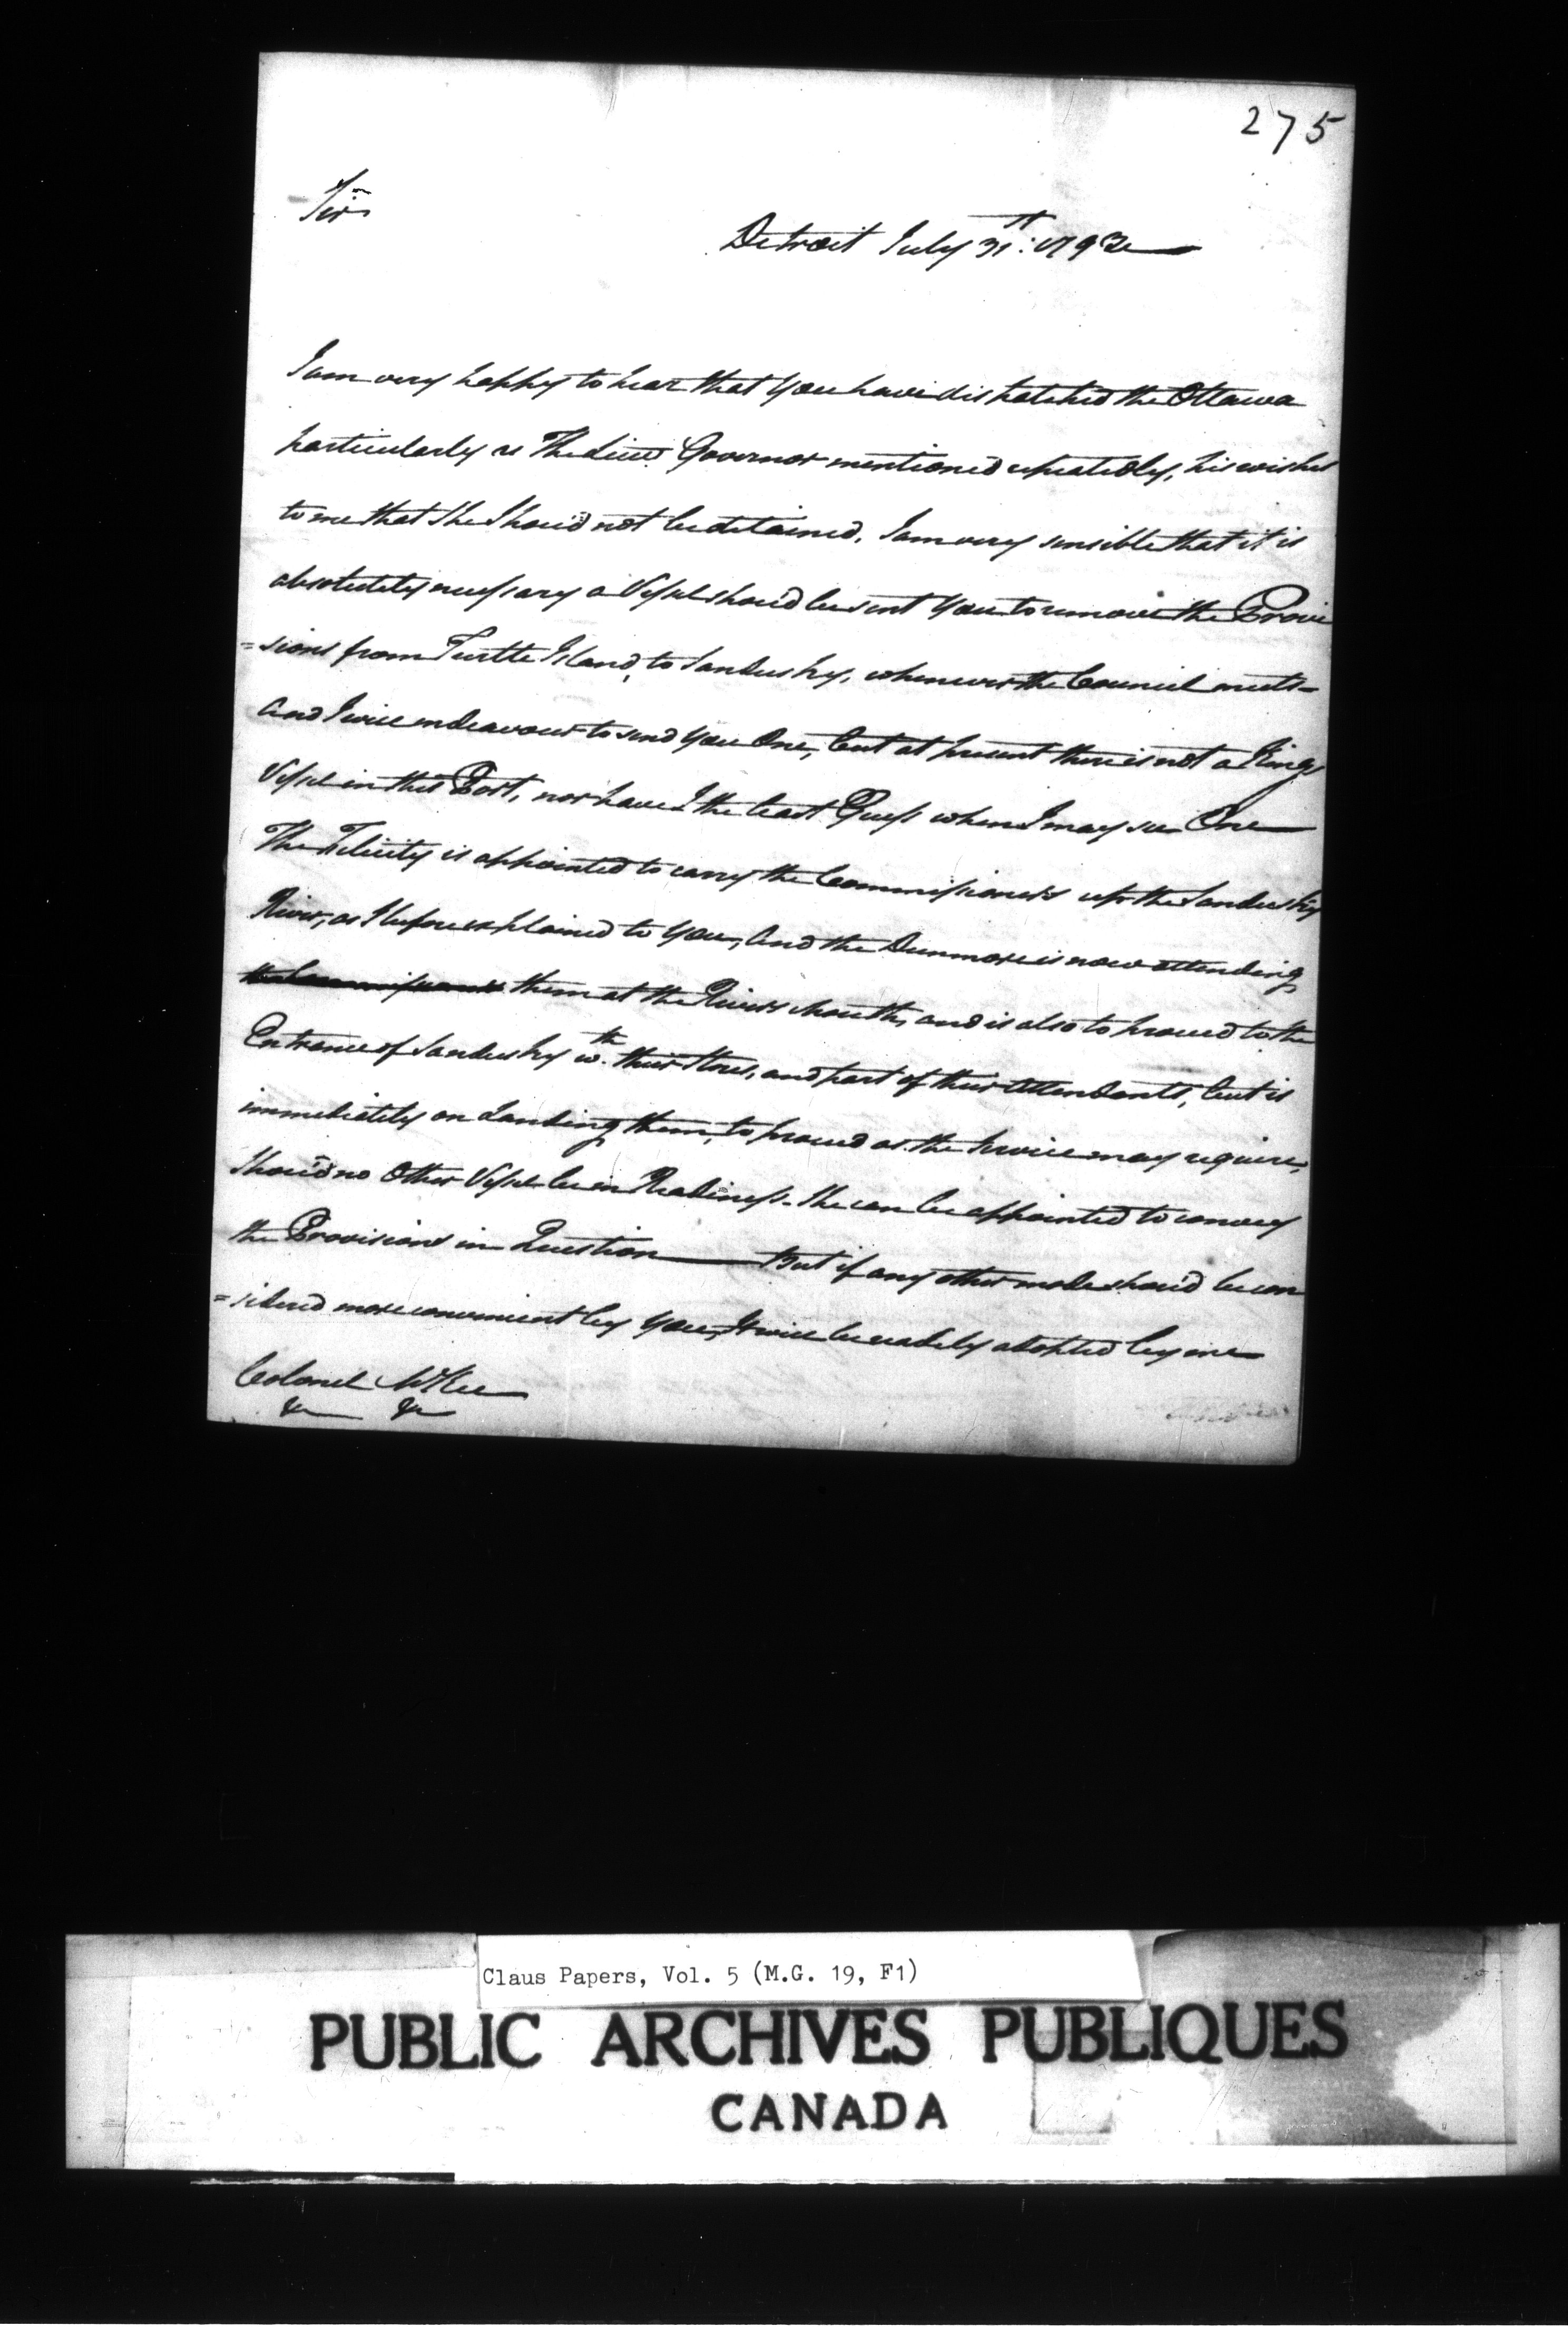 275
Sir
Detroit July 31st: 1793
I am very happy to hear that you have dispatched the Ottawa
particularly as The Lieut. Governor mentioned repeatedly, his wishes
to me that she Shou'd not be detained. I am very sensible that it is
absolutely necessary a Vessel shou'd be sent you to remove the Provi
=sions from Turtle Island, to Sandusky, whenever the Council meets-
And I will endeavour to send you One, but at present there is not a Kings
Vessel in this Port, nor have I the least Guess when I may see One
The Felicity is appointed to carry the Commissioners up the Sandusky
River, as I before explained to you, And the Dunmore is now attending
the Commissioners them at the Rivers Mouth, and is also to proceed to the
Entrance of Sandusky wth. their Stores, and part of their Attendants, but is
immediately on Landing them, to proceed as the Service may require,
Shou'd no Other Vessel be in Readiness - She can be appointed to convey
the Provisions in Question — But if any other mode shou'd be con
=sidered more convenient by you, It will be readily adopted by me
Colonel McKee
&c &c
Claus Papers, Vol. 5 (M.G. 19, F1)
PUBLIC ARCHIVES PUBLIQUES
CANADA